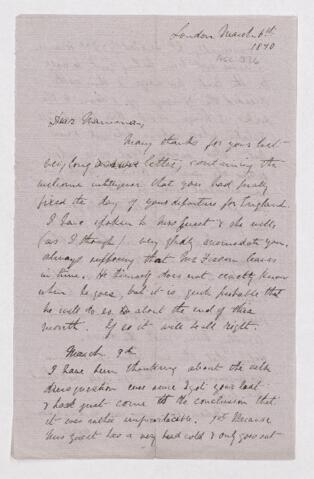 London March 6th
1870
Dear Mamma,
Many thanks for your last
very long letter, containing the
welcome intelligence that you had finally
fixed the day of your departure for England.
I have spoken to Mrs Guest & she will
(as I thought) very gladly accomodate you,
always supposing that Mr leaves
in time. He himself does not exactly know
when he goes, but it is quite probable that
he will do so about the end of this
month. If so it will be all right.
March 9th
I have been thinking about the silk
dress question ever since I got your last
& had just come to the conclusion that
it was rather impracticable. 1st Because
Mrs Guest has a very bad cold & only goes out